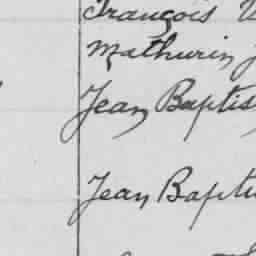 François
Mathurin J
Jean Baptis
Jean Baptis